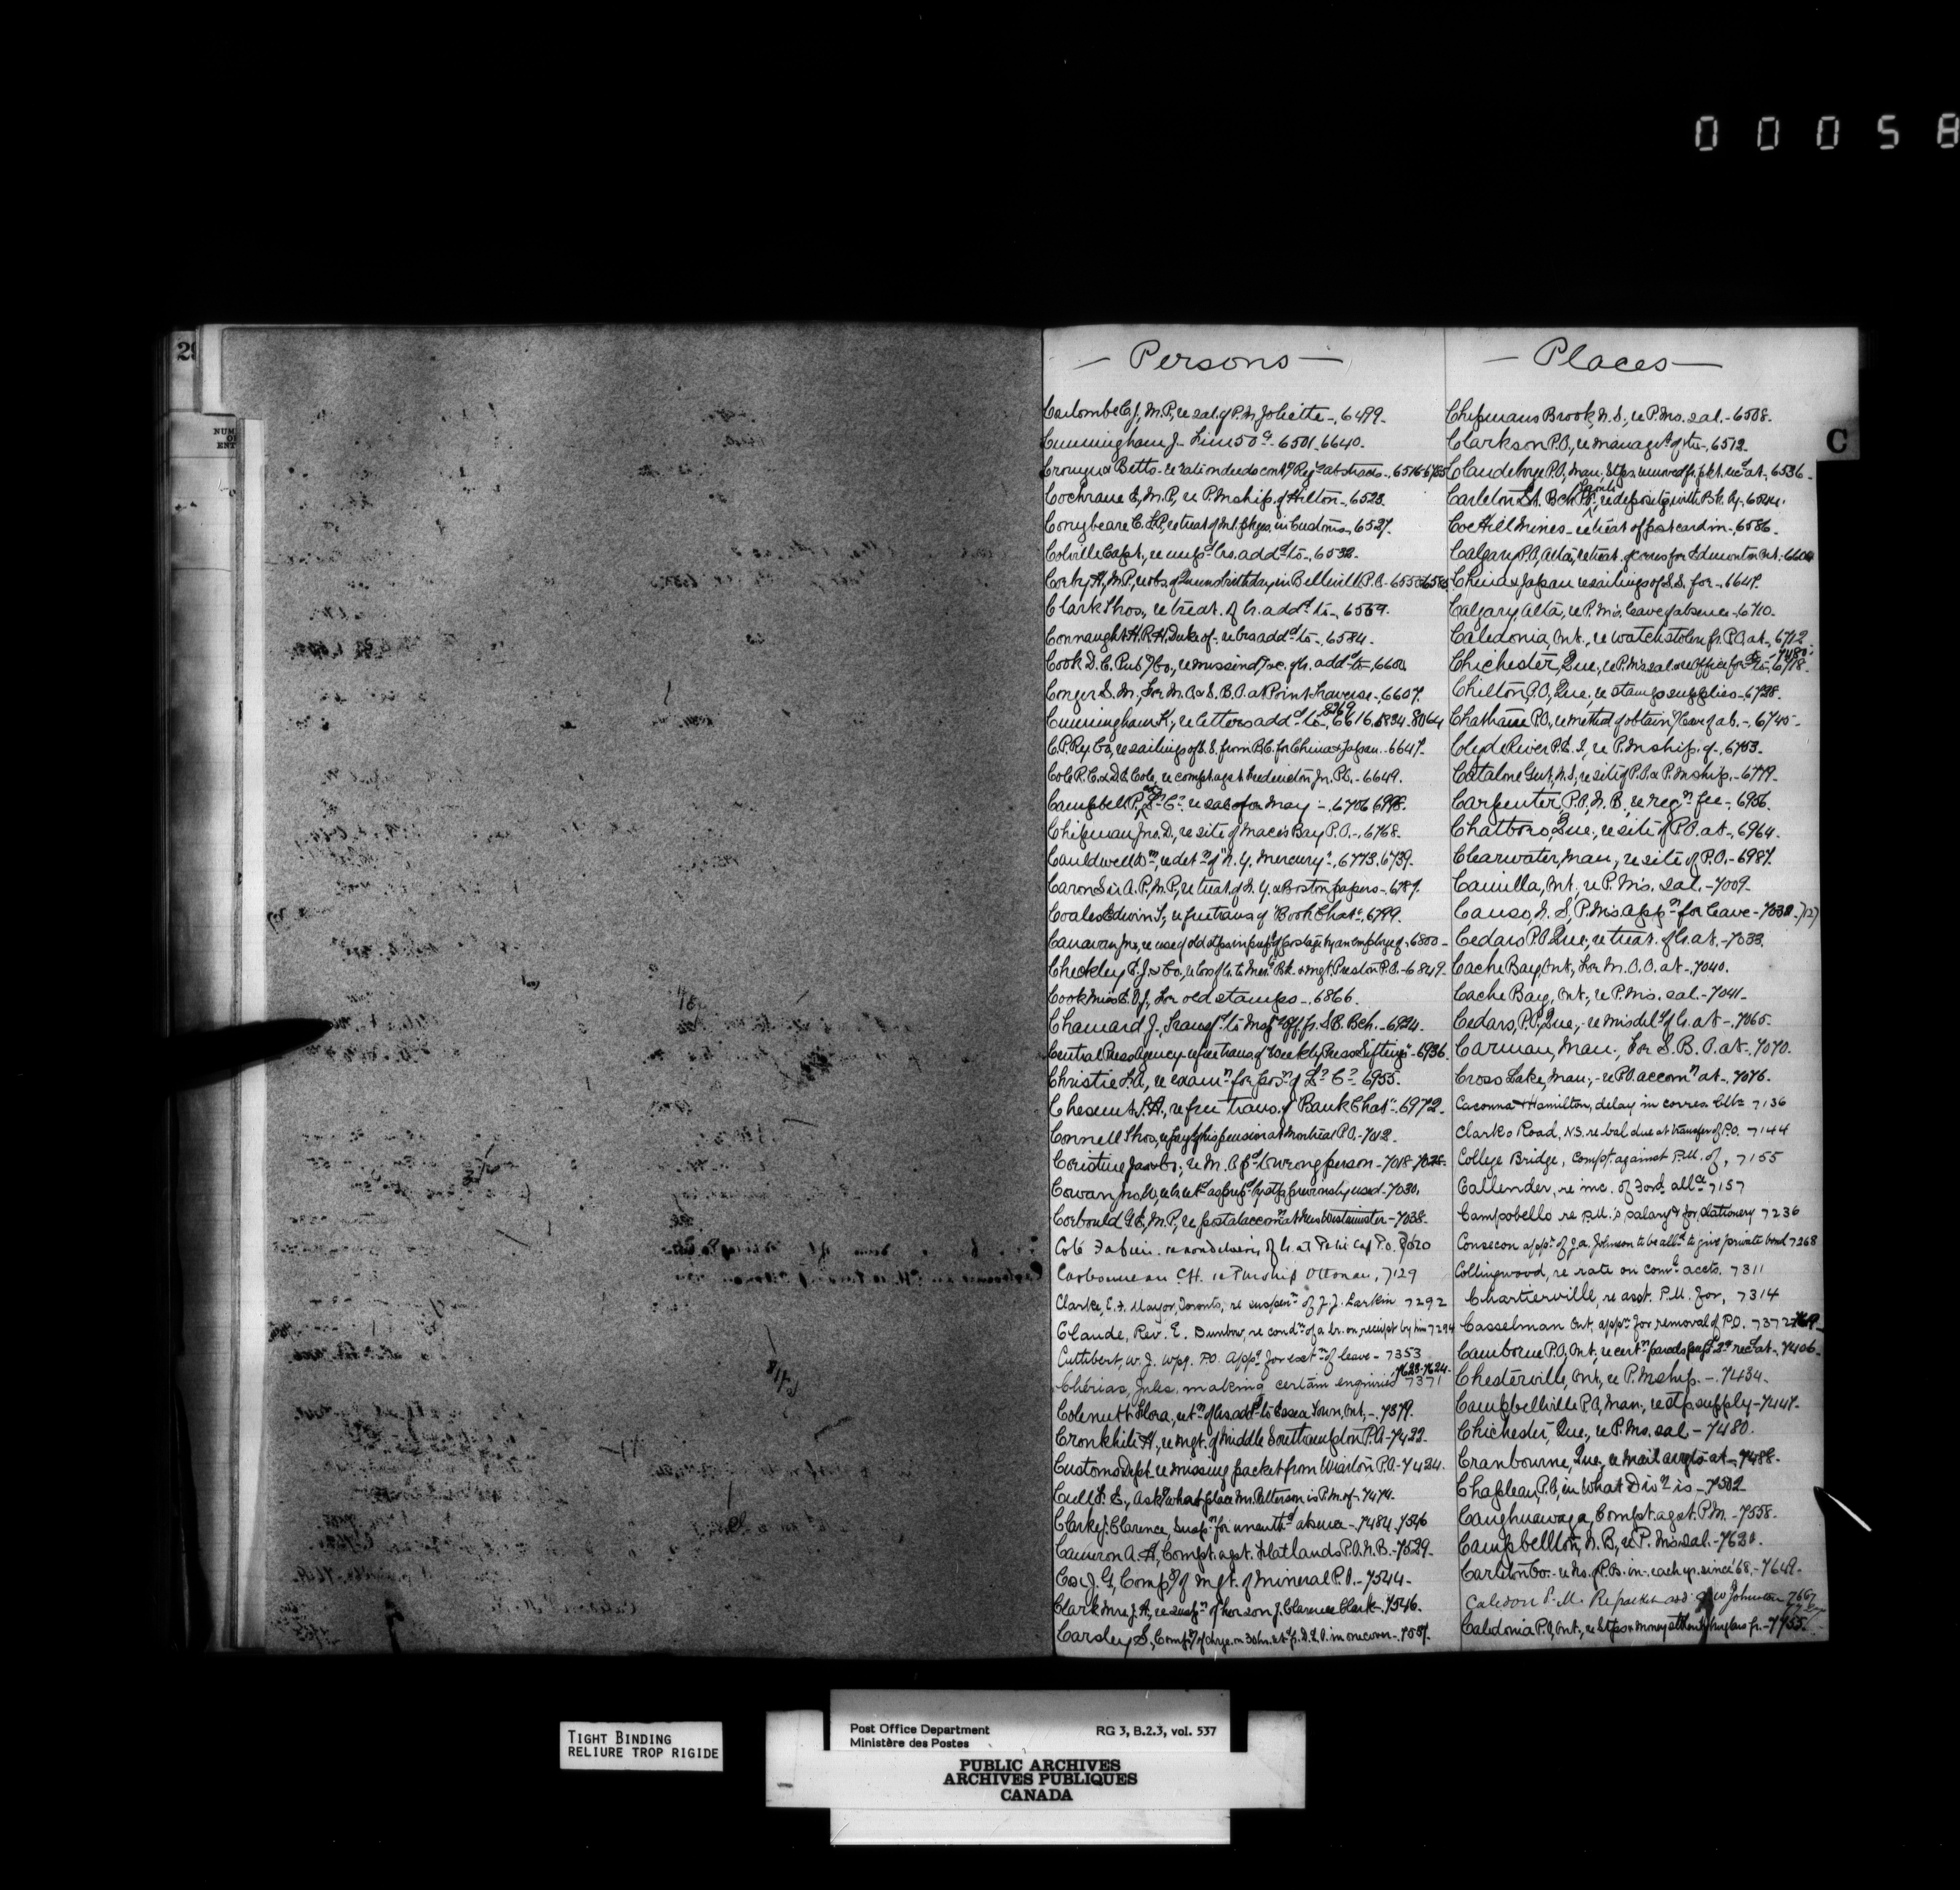 00058
29
NUM
OF
ENT
C
Persons
C. J., M.P., re sal. of P.M. Joliette - 6499.
Cunningham J. - 6501. 6640.
& Betts - re 6516-6755
Cochrane E, M.P., re P.Mship. of Hilton - 6523.
Conybeare C. re treat of in Customs - 6527.
Colville Capt., re lrs. addd to - 6532.
Corby H, M.P, re obs. of Queens birthday in Belleville P.O. - 6550
Clark Thos., re treat. of lr. addd to - 6569.
Connaught H.R.H. Duke of - re lrs addd to - 6584.
Cook D. C. Pub'g Co., re missend'g &c. of lr. addd to - 6600
Conger S. M., For M.O. & S.B.O. at Point Traverse - 6607.
Cunningham K., re letters addd to - 6616. 6834. 8064 8269
C.P.Ry Co, re sailings of S.S. from B.C. for China & Japan - 6647.
Cole R. C. & D. E. Cole, re compt agst Fredericton Jn. P.O. - 6649.
Campbell P., re sal for May - 6706 6998.
Chipman Jno. D., re site of Maces Bay P.O. - 6768.
Cauldwell Wm, re detn of "N. Y. Mercury" - 6773. 6739.
Caron Sir A. P., M.P., re treat. of N.Y. & Boston papers - 6787.
Coates Edwin T., re free trans of "Book Chat" - 6799.
Canavan Mr., re use of old stps in prept of postage by an employe of - 6800 -
Checkley E. J. & Co., re & mgt. Preston P.O. - 6849.
Cook Miss E. O. J., For old stamps - 6866.
Chamard J., Transfd to Insp Off. fr. S.B. Bch. - 6924.
Central Press Agency - re free trans of "Weekly Press Siftings" - 6936.
Christie L.A, re examn for posn of L. C. 6955.
Chesnut S. A., re free trans. of "Bank Chat" - 6972.
Connell Thos, re payt of his pension at Montreal P.O. - 7012.
Coristine Jas & Co., re M. O. pd to wrong person - 7018 - 7028.
Cowan Jno. W., re lr retd as prepd by stp previously used - 7030.
Corbould G. E., M.P., re postal accomn at New Westminster - 7038.
Coté Fabien re non delivery of lr. at Petit Cap P.O. 7620
Carbonneau C.H. re Pmship Ottonau, 7129
Clarke, E. F. Mayor, Toronto, re suspn of J. J. Larkin 7292
Claude, Rev. E. Dunbow, re condn of a lr. on receipt by him 7294
Cuthbert, W. J. Wpg. P.O. Appn for extn of leave - 7353
Chérias, Jules. making certain enquiries 7371 7623-7624-
Colenutt Flora, re tr of lrs addd to Essex Town, Ont. - 7379.
Cronkhite H., re mgt. of Middle Southampton P.O. - 7422-
Customs Dept. re missing packet from Wiarton P.O. - 7424.
Cull F. E., Ask'g what place Mr. Patterson is P.M. of - 7474.
Clarke J. Clarence, Suspn for unauthd absence - 7484. 7546
Cameron A. H., Compt. agst. Flatlands P.O. N.B. - 7529-
Cox J. G., Comp'g of mgt. of Mineral P.O. - 7544 -
Clark Mrs. J. A., re suspn of her son J. Clarence Clark - 7546.
Carsley S., Comp'g of chge. on 3 lrs. retd fr. D.L.O. in one cover - 7557.
Places
Chipmans Brook, N.S., re P.Ms. sal. - 6508.
Clarkson P.O., re managt of the - 6512.
Clandeboye P.O., Man., Stps removed fr. pkt. recd at - 6536 -
Carleton St. Bch P.O., Toronto re deposit'g with Bk. Ag. -
Coe Hill Mines - re treat of post card in - 6586.
Calgary P.O., Alta, re treat. of corres for Edmonton &c. - 6604
China & Japan re sailings of S.S. for - 6647.
Calgary, Alta, re P.M's. leave of absence - 6710.
Caledonia, Ont., re watch stolen fr. P.O. at - 6712
Chichester, Que, re P.Ms sal. 6718. 7480-
Chilton P.O., Que., re stamp supplies - 6738.
Chatham P.O., re method of obtain'g leave of ab. - 6745 -
Clyde River P.E.I., re P.Mship. of - 6753.
Catalone Gut, N.S., re site of P.O. & P.Mship. - 6779.
Carpenter P.O., N.B., re regn fee - 6956.
Chatboro, Que., re site of P.O. at - 6964.
Clearwater, Man., re site of P.O. - 6987.
Camilla, Ont., re P.M's. sal. - 7009.
Canso, N. S., P.M's. Appn for leave - 7030 - 7127
Cedars P.O. Que., re treat. of lr. at. - 7033.
Cache Bay, Ont., For M.O.O. at - 7040.
Cache Bay, Ont., re P.M's. sal. - 7041 -
Cedars, P.O., Que., - re misdely of lr. at - 7065 -
Carman, Man., For S. B. O. at - 7070.
Cross Lake, Man., - re P.O. accomn at - 7076.
Cacouna & Hamilton, delay in corres. betn 7136
Clarks Road, N.S. re bal due at transfer of P.O. 7144
College Bridge, Compt. against P.M. of, 7155
Callender, re inc. of Ford. allce 7157
Campobello re P.M.'s salary & for stationery 7236
Consecon appn of J. A. Johnson to be alld to give private bond 7268
Collingwood, re rate on coml accts. 7311
Chartierville, re asst. P.M. for, 7314
Casselman Ont, appn for removal of P.O. 7372
Camborne P.O., Ont., re certn parcels recd at - 7406-
Chesterville, Ont., re P.Mship. - 7434.
Campbellville P.O., Man., re stp supply - 7447-
Chichester, Que., re P.Ms. sal - 7480.
Cranbourne, Que., re mail arrgts at - 7488.
Chapleau, P.O., in what Divn is - 7502
Caughnawaga, Compt. agst. P.M. - 7558.
Campbellton, N.B., re P.M's sal. - 7620.
Carleton Co. - re No. of P.Os. in each yr. since '68. - 7649-
Caledon P.M. Re packet add. J W Johnston 7667
Caledonia P.O., Ont., re Stps & money stolen by burglars fr. - 7755.
TIGHT BINDING
RELIURE TROP RIGIDE
Post Office Department RG 3, B.2.3, vol. 537
Ministère des Postes
PUBLIC ARCHIVES
ARCHIVES PUBLIQUES
CANADA